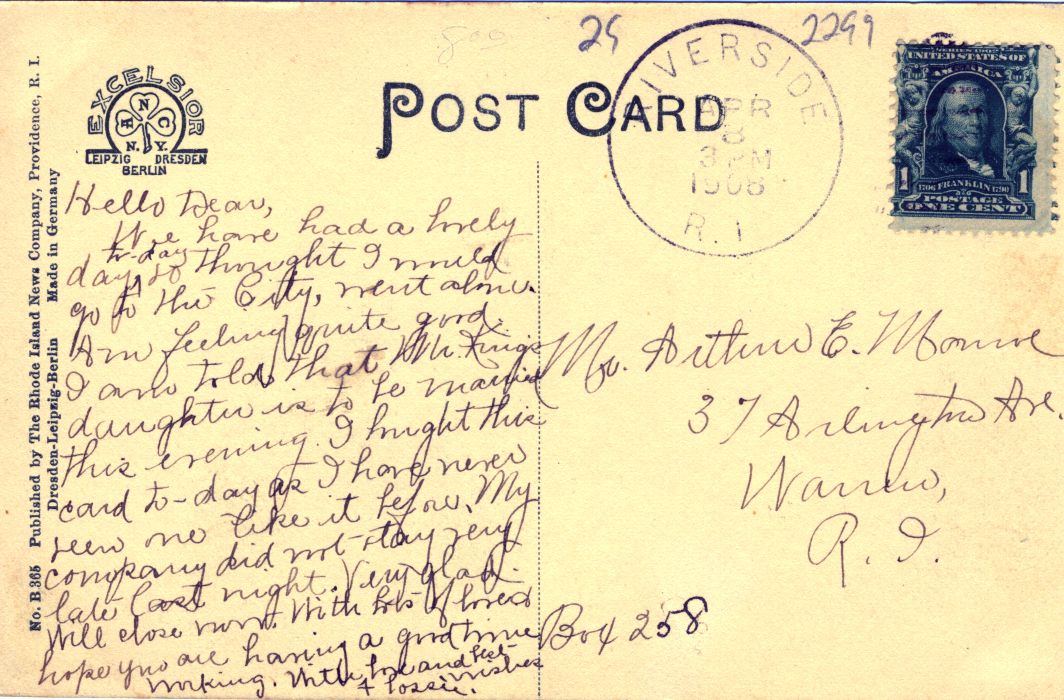 No. B.365 Published by The Rhode Island News Company, Providence, R. I.
Dresden-Leipzig-Berlin Made in Germany
EXCELSIOR
R N C
N. Y.
LEIPZIG DRESDEN
BERLIN
POST CARD
25
2299
RIVERSIDE
APR
8
3 PM
1908
R. I.
SERIES 1902
UNITED STATES OF
AMERICA
1 1
1706 FRANKLIN 1790
POSTAGE
ONE CENT
Hello Dear,
We have had a lovely
day to-day, so thought I would
go to the City, went alone.
Am feeling quite good.
I am told that Mr. Kings
daughter is to be married
this evening. I bought this
card to-day as I have never
seen one like it before. My
company did not stay very
late last night. Very glad.
Will close now. With lots of love &
hope you are having a good time
working. With love and best wishes
Mr. Arthur E. Monroe
37 Arlington Ave.
Warren,
R. I.
Box 258